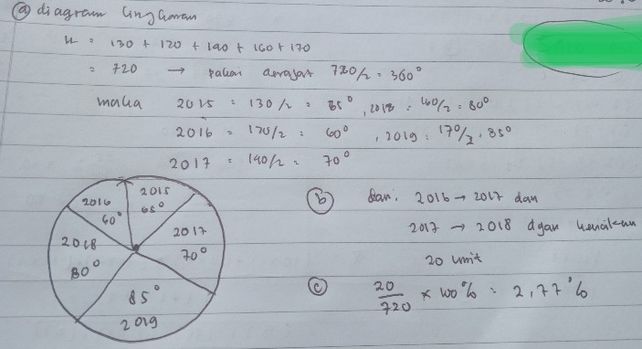 a diagram lingkaran
n = 130 + 120 + 140 + 160 + 170
= 720 → derajat 720/2 = 360°
maka 2015 = 130/2 = 65°, 2018 = 160/2 = 80°
2016 = 120/2 = 60°, 2019 = 170/2 = 85°
2017 = 140/2 = 70°
2016 60°
2015 65°
2017 70°
2018 80°
85° 2019
b dari. 2016 → 2017 dan
2017 → 2018 dgan kenaikan
20 unit
c 20/720 × 100% = 2,77%